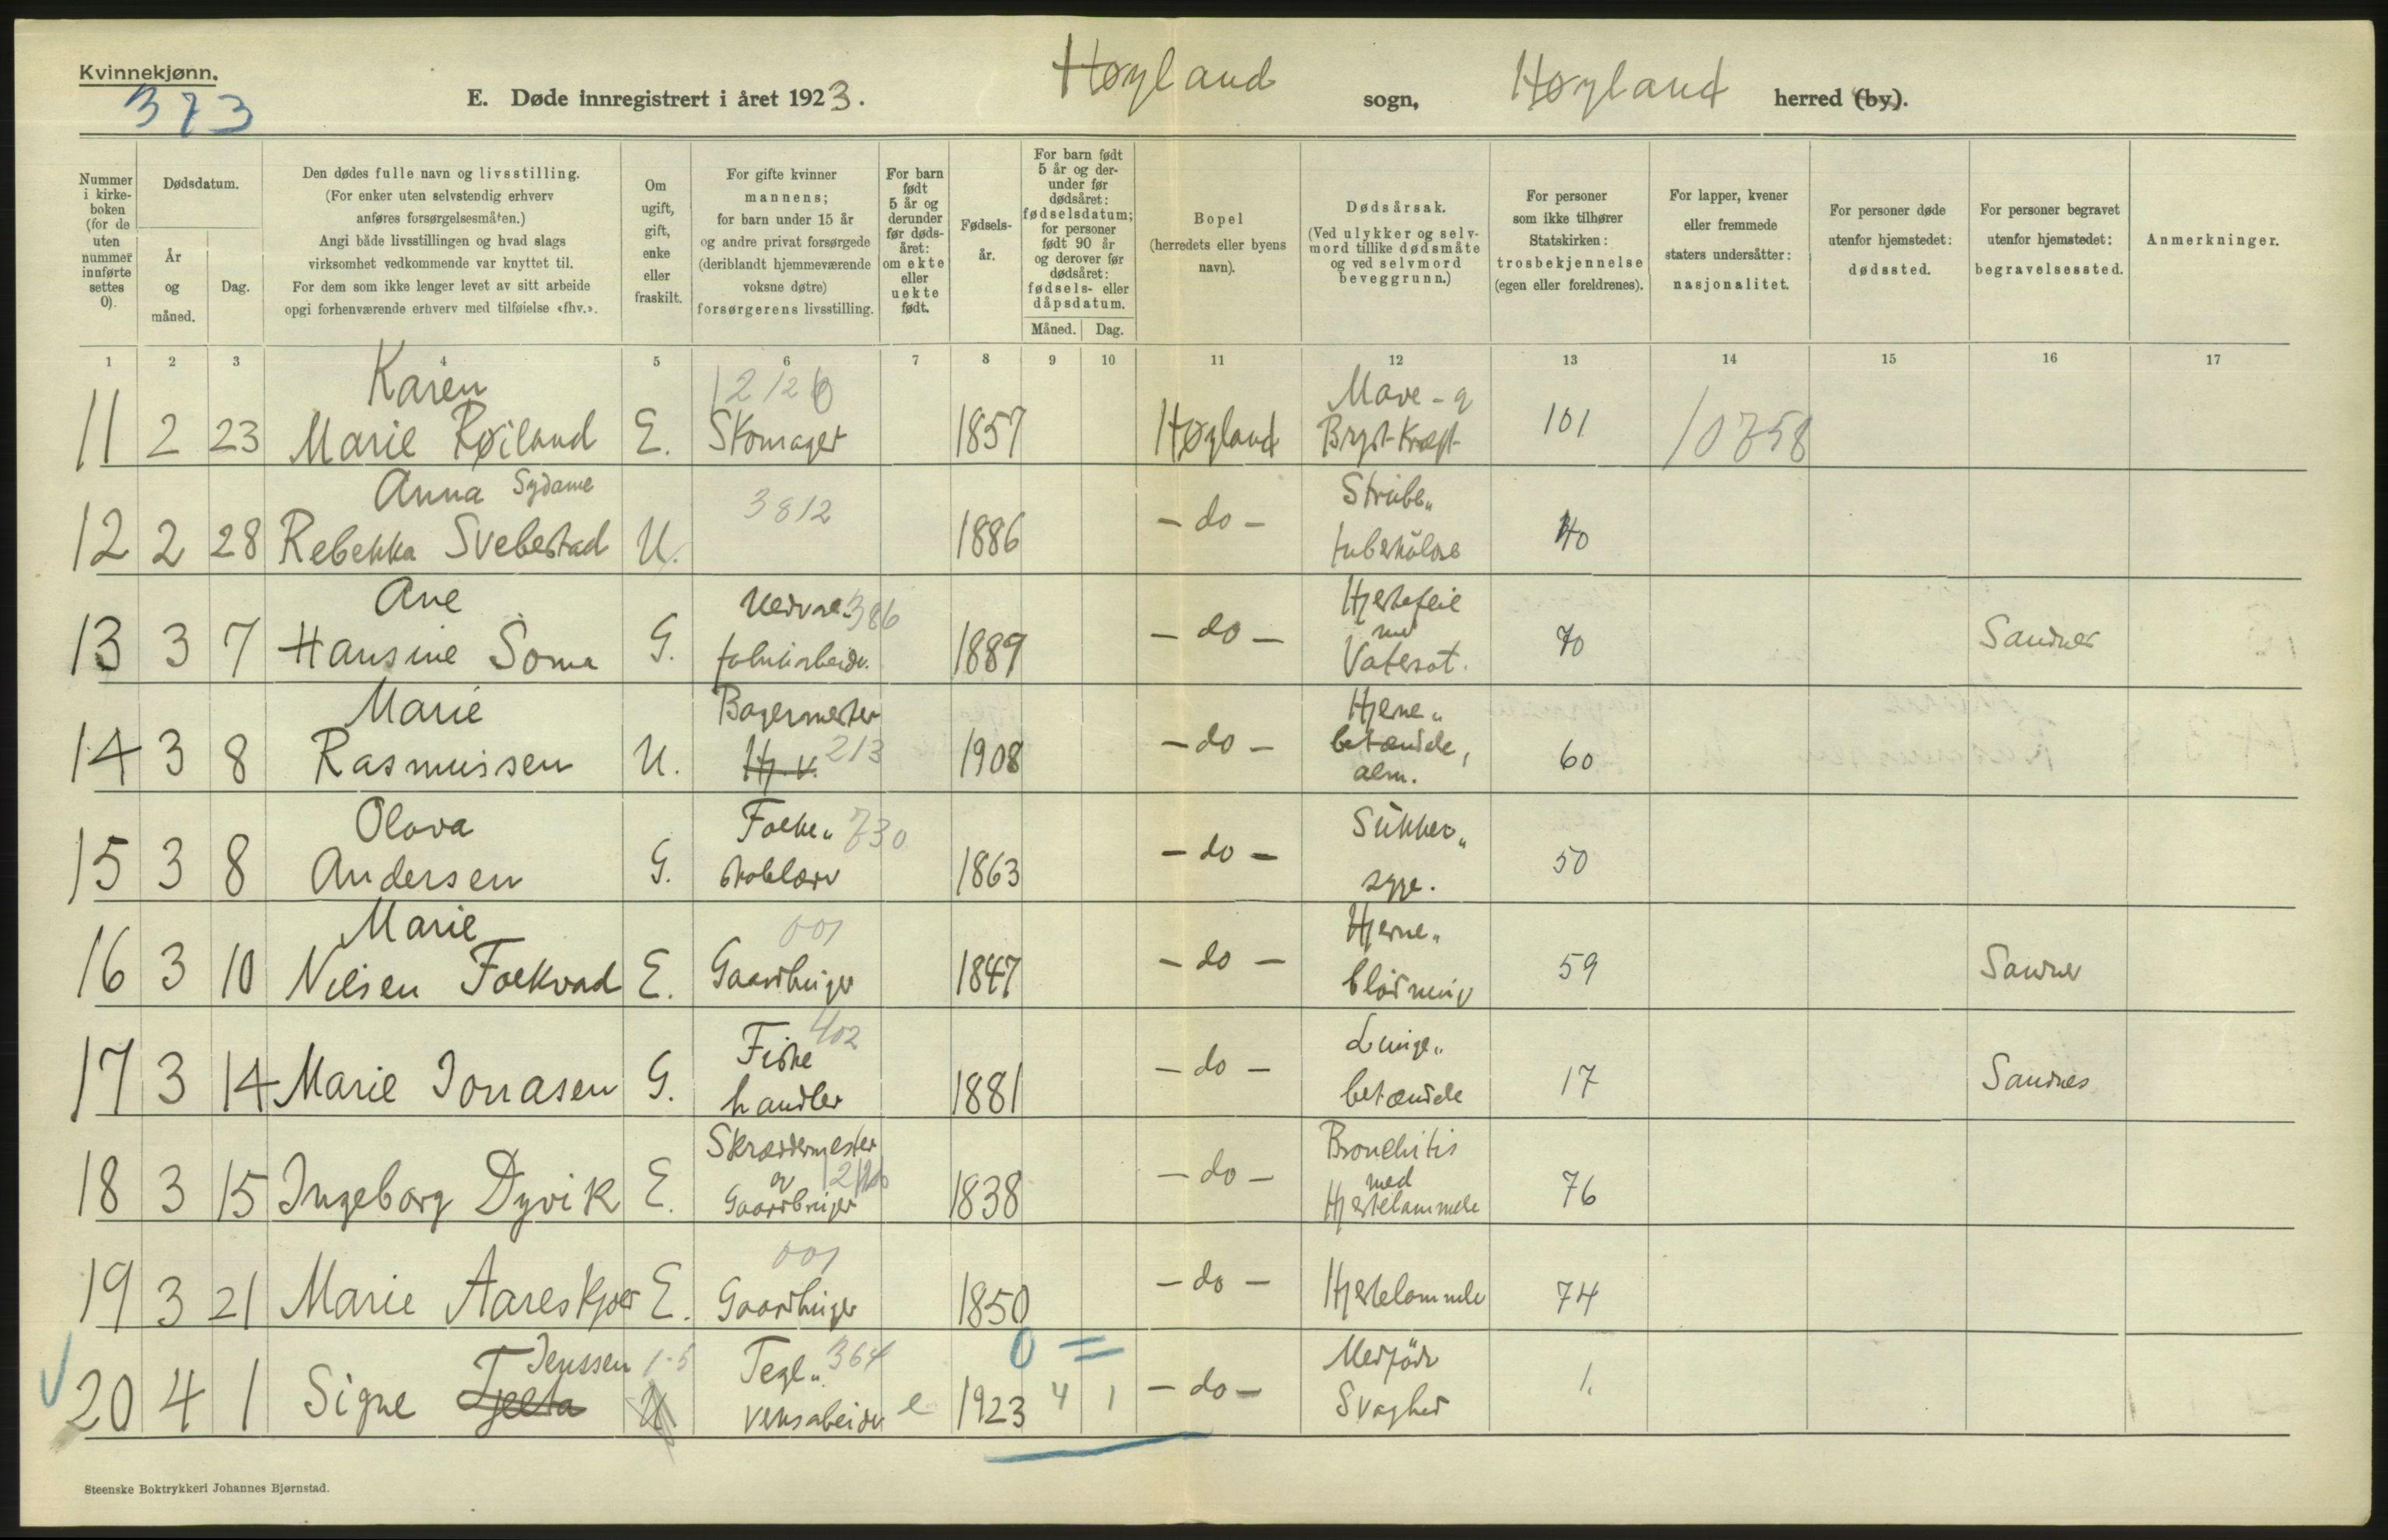 Kvinnekjønn.
373
E. Døde innregistrert i året 1923. Høyland sogn, Høyland herred (by).
Nummer i kirkeboken (for de uten nummer innførte settes 0).
Dødsdatum.
År og måned.
Dag.
Den dødes fulle navn og livsstilling.
(For enker uten selvstendig erhverv anføres forsørgelsesmåten.)
Angi både livsstillingen og hvad slags virksomhet vedkommende var knyttet til.
For dem som ikke lenger levet av sitt arbeide opgi forhenværende erhverv med tilføielse «fhv.».
Om ugift, gift, enke eller fraskilt.
For gifte kvinner mannens; for barn under 15 år og andre privat forsørgede (deriblandt hjemmeværende voksne døtre) forsørgerens livsstilling.
For barn født 5 år og derunder før dødsåret: om ekte eller uekte født.
Fødselsår.
For barn født 5 år og derunder før dødsåret: fødselsdatum; for personer født 90 år og derover før dødsåret: fødsels- eller dåpsdatum.
Måned. Dag.
Bopel (herredets eller byens navn).
Dødsårsak.
(Ved ulykker og selvmord tillike dødsmåte og ved selvmord beveggrunn.)
For personer som ikke tilhører Statskirken: trosbekjennelse (egen eller foreldrenes).
For lapper, kvener eller fremmede staters undersåtter: nasjonalitet.
For personer døde utenfor hjemstedet: dødssted.
For personer begravet utenfor hjemstedet: begravelsessted.
Anmerkninger.
1 2 3 4 5 6 7 8 9 10 11 12 13 14 15 16 17
Karen 12126 Mave- g
11 2 23 Marie Røiland E. Skomager 1857 Høyland Bryst-Kræft 101 10758
Anna Sydame 3812 Strube„
12 2 28 Rebekka Svebestad U. 1886 - do - tuberkulose 40
Ane 386 Hjertefeil
13 3 7 Hansine Soma G. fabrikarbeider 1889 - do - med Vatersot. 70 Sandnes
Marie Bagermester Hjerne„
14 3 8 Rasmussen U. H. v. 213 1908 - do - betændelse, alm. 60
Olava Folke„ 730 Sukker„
15 3 8 Andersen G. skolelærer 1863 - do - syge. 50
Marie 001 Hjerne„
16 3 10 Nilsen Folkvad E. Gaardbruger 1847 - do - blødning 59 Sandnes
Fiske 402 Lunge„
17 3 14 Marie Jonasen G. handler 1881 - do - betændelse 17 Sandnes
Skræddermester Bronchitis
18 3 15 Ingeborg Dyvik E. og Gaardbruger 1838 - do - med Hjertelammelse 76
001
19 3 21 Marie Aareskjold E. Gaardbruger 1850 - do - Hjertelammelse 74
Jenssen 1-5 Tegl„ 364 0 = Medfødt
20 4 1 Signe Tjelta U verksarbeider e 1923 4 1 - do - Svaghed 1.
Steenske Boktrykkeri Johannes Bjørnstad.